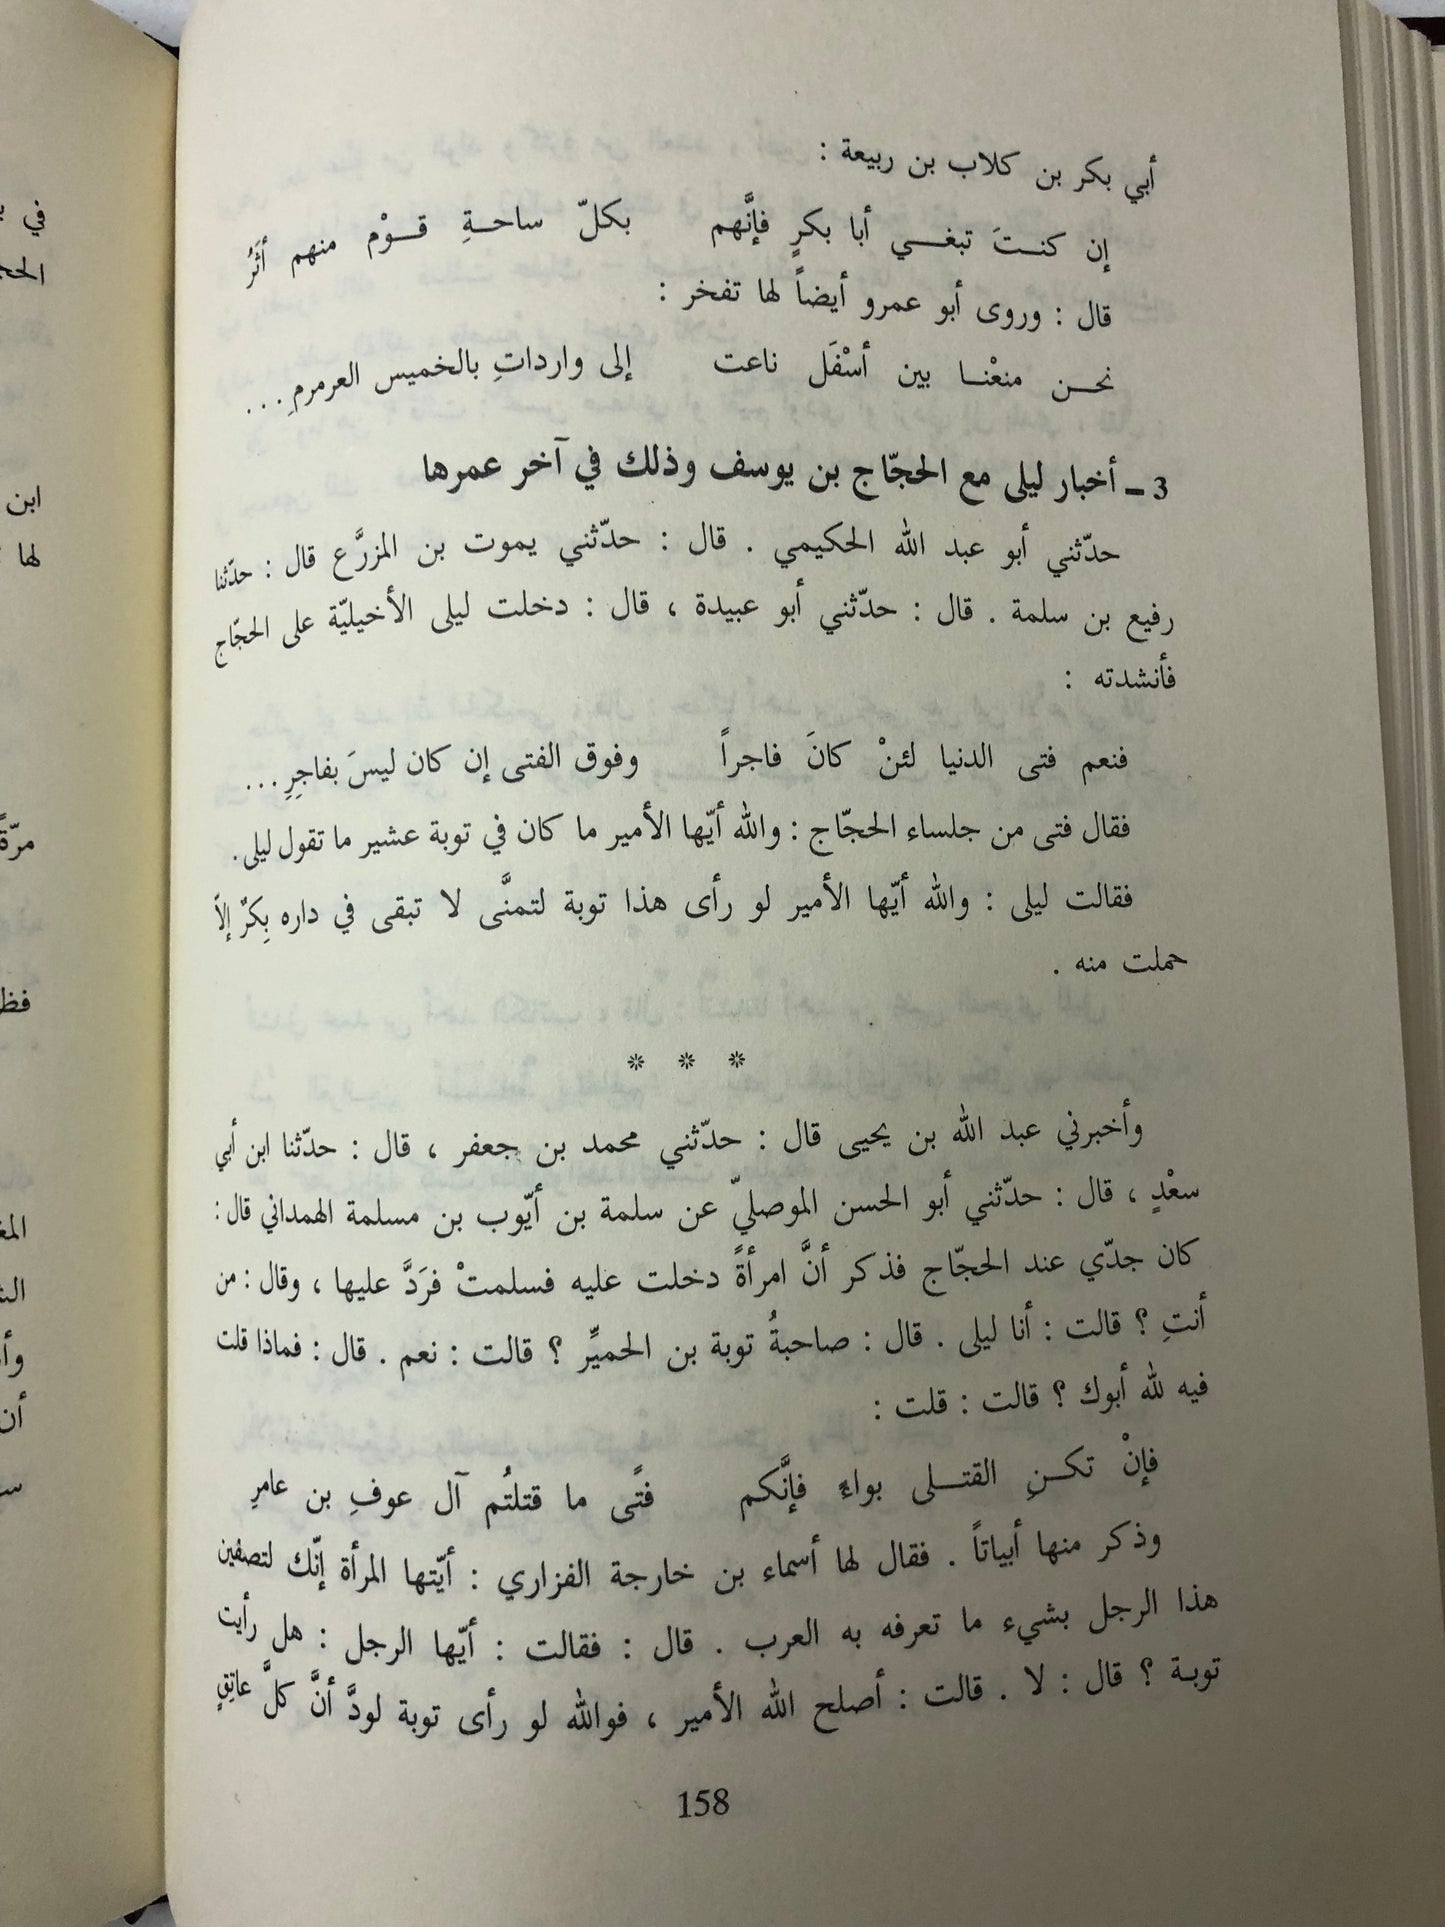 أبي بكر بن كلاب بن ربيعة :
إن كنـتَ تبغـي أبا بكرٍ فإنَّهم بكلّ ساحـةِ قـوْم منهم أثَرُ
قال : وروى أبو عمرو أيضاً لها تفخر :
نحـن منعْنـا بين أسْفَل ناعت إلى وارداتِ بالخميس العرمرمِ ...
3 ـ أخبار ليلى مع الحجّاج بن يوسف وذلك في آخر عمرها
حدّثني أبو عبد الله الحكيمي . قال : حدّثني يموت بن المزرَّع قال : حدّثنا
رفيع بن سلمة . قال : حدّثني أبو عبيدة ، قال : دخلت ليلى الأخيليّة على الحجّاج
فأنشدته :
فنعم فتى الدنيا لئنْ كانَ فاجراً وفوق الفتى إن كان ليسَ بفاجِرِ ...
فقال فتى من جلساء الحجّاج : والله أيّها الأمير ما كان في توبة عشير ما تقول ليلى .
فقالت ليلى : والله أيّها الأمير لو رأى هذا توبة لتمنَّى لا تبقى في داره بِكرٌ إلاّ
حملت منه .
* * *
وأخبرني عبد الله بن يحيى قال : حدّثني محمد بن جعفر ، قال : حدّثنا ابن أبي
سعْدٍ ، قال : حدّثني أبو الحسن الموصليّ عن سلمة بن أيّوب بن مسلمة الهمداني قال :
كان جدّي عند الحجّاج فذكر أنَّ امرأةً دخلت عليه فسلمتْ فرَدَّ عليها ، وقال : من
أنتِ ؟ قالت : أنا ليلى . قال : صاحبةُ توبة بن الحميِّر ؟ قالت : نعم . قال : فماذا قلت
فيه لله أبوك ؟ قالت : قلت :
فإنْ تكـنِ القتـلى بواءً فإنَّكم فتًى ما قتلتُم آل عوفِ بن عامرِ
وذكر منها أبياتاً . فقال لها أسماء بن خارجة الفزاري : أيّتها المرأة إنّك لتصفين
هذا الرجل بشيء ما تعرفه به العرب . قال : فقالت : أيّها الرجل : هل رأيت
توبة ؟ قال : لا . قالت : أصلح الله الأمير ، فوالله لو رأى توبة لودَّ أنَّ كلَّ عاتِقٍ
158
في
ابن
لها
مرّةً
أن